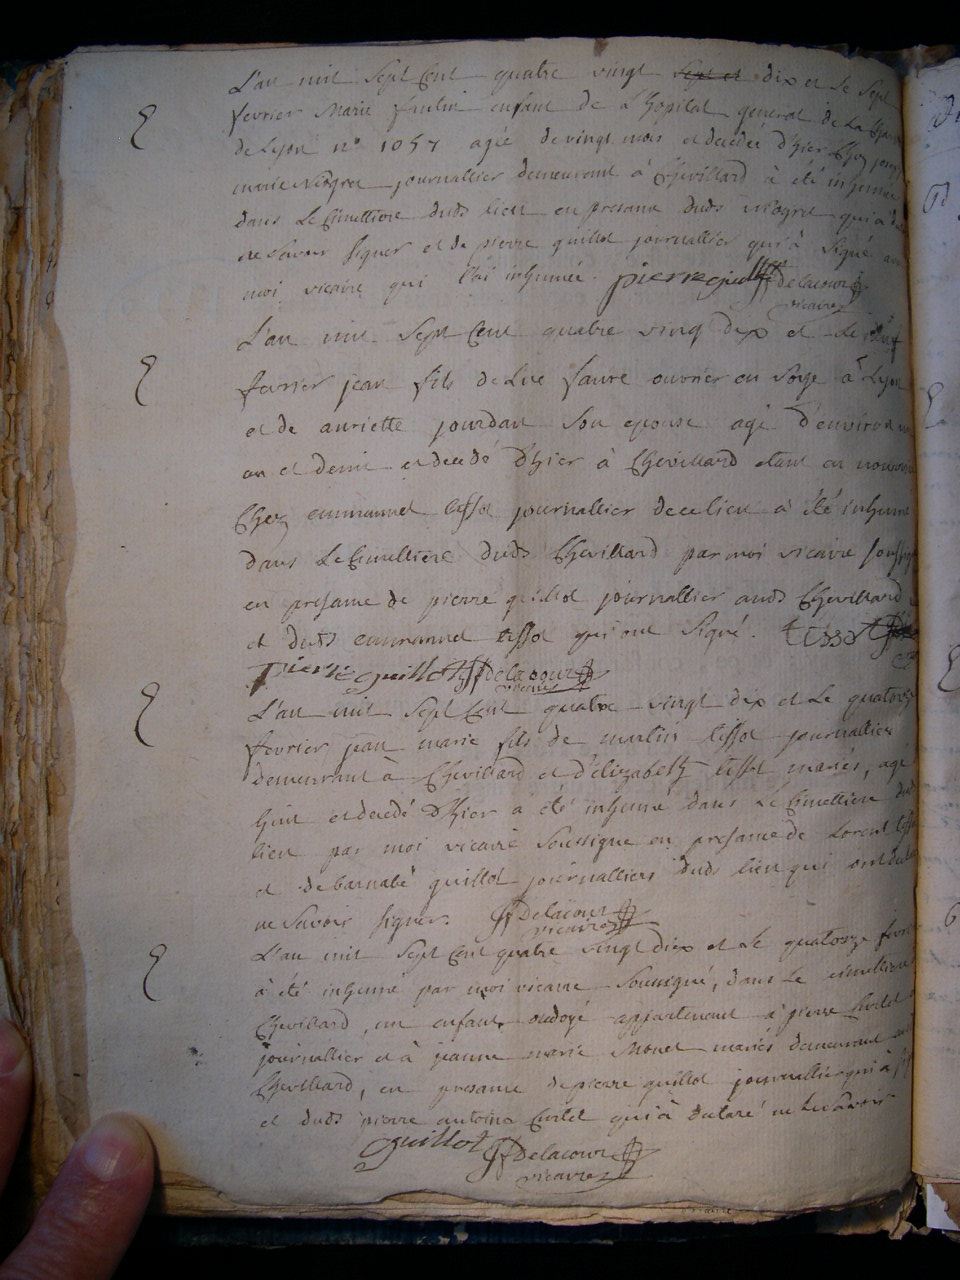 L'an mil Sept Cent quatre vingt Sept et dix et Le Sept
fevrier Marie enfant de L'hopital general de La
de Lyon n° 1057 agée de vingt mois et decedée D'hier Chez
marie journallier demeurant à Chevillard à été inhumée
dans Le Cimettiere duds lieu en presance duds qui à
ne savoir signer et de pierre quillot journallier qui à signé avec
moi vicaire qui l'ai inhumée. pierre quillot Delacour
vicaire
L'an mil Sept Cent quatre ving dix et Le neuf
fevrier jean fils de Luc favre ouvrier en Soye à Lyon
et de anriette jourdan Son epouse agé d'environ un
an et demi et decedé D'hier à Chevillard etant en
Chez emmanuel tissot journallier de ce lieu à été inhumé
dans Le Cimettiere duds Chevillard par moi vicaire
en presance de pierre quillot journallier auds Chevillard
et duds emmanuel tissot qui ont signé. tissot
Pierre quillot Delacour
vicaire
L'an mil Sept Cent quatre vingt dix et Le quatorze
fevrier jean marie fils de tissot journallier
demeurant à Chevillard et d'élizabeth tissot mariés, agé
et decedé D'hier a été inhumé dans Le Cimettiere duds
lieu par moi vicaire Soussigné en presance de Lorent
et de barnabé quillot journalliers duds lieu qui ont
ne Savoir signer. Delacour
vicaire
L'an mil Sept Cent quatre vingt dix et Le quatorze fevrier
à été inhumé par moi vicaire Soussigné, dans Le cimettiere
Chevillard, un enfant ondoyé appartenant à pierre
journallier et à jeanne marie Monet mariés demeurant
Chevillard, en presance de pierre quillot journallier qui à
et duds pierre antoine qui à declaré ne Le Savoir
quillot Delacour
vicaire